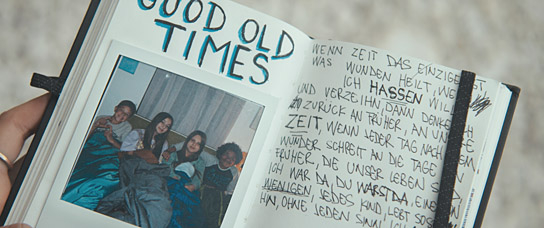 GOOD OLD
TIMES
WENN ZEIT DAS EINZIGE IST,
WAS WUNDEN HEILT, WE
ICH HASSEN WIL
UND VERZEIHN DANN DENK ICH
ZURÜCK AN FRÜHER, AN UNSE
ZEIT, WENN JEDER TAG NACH
WUNDER SCHREIT AN DIE TAGE
FRÜHER, DIE UNSER LEBEN S
ICH WAR DA, DU WARST DA, EIN
WENIGEN, JEDES KIND, LEBT SO
HIN, OHNE JEDEN SINN